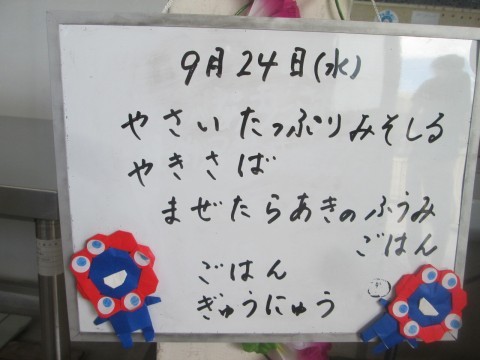 9月24日(水)
やさいたっぷりみそしる
やきさば
まぜたらあきのふうみ
ごはん
ごはん
ぎゅうにゅう